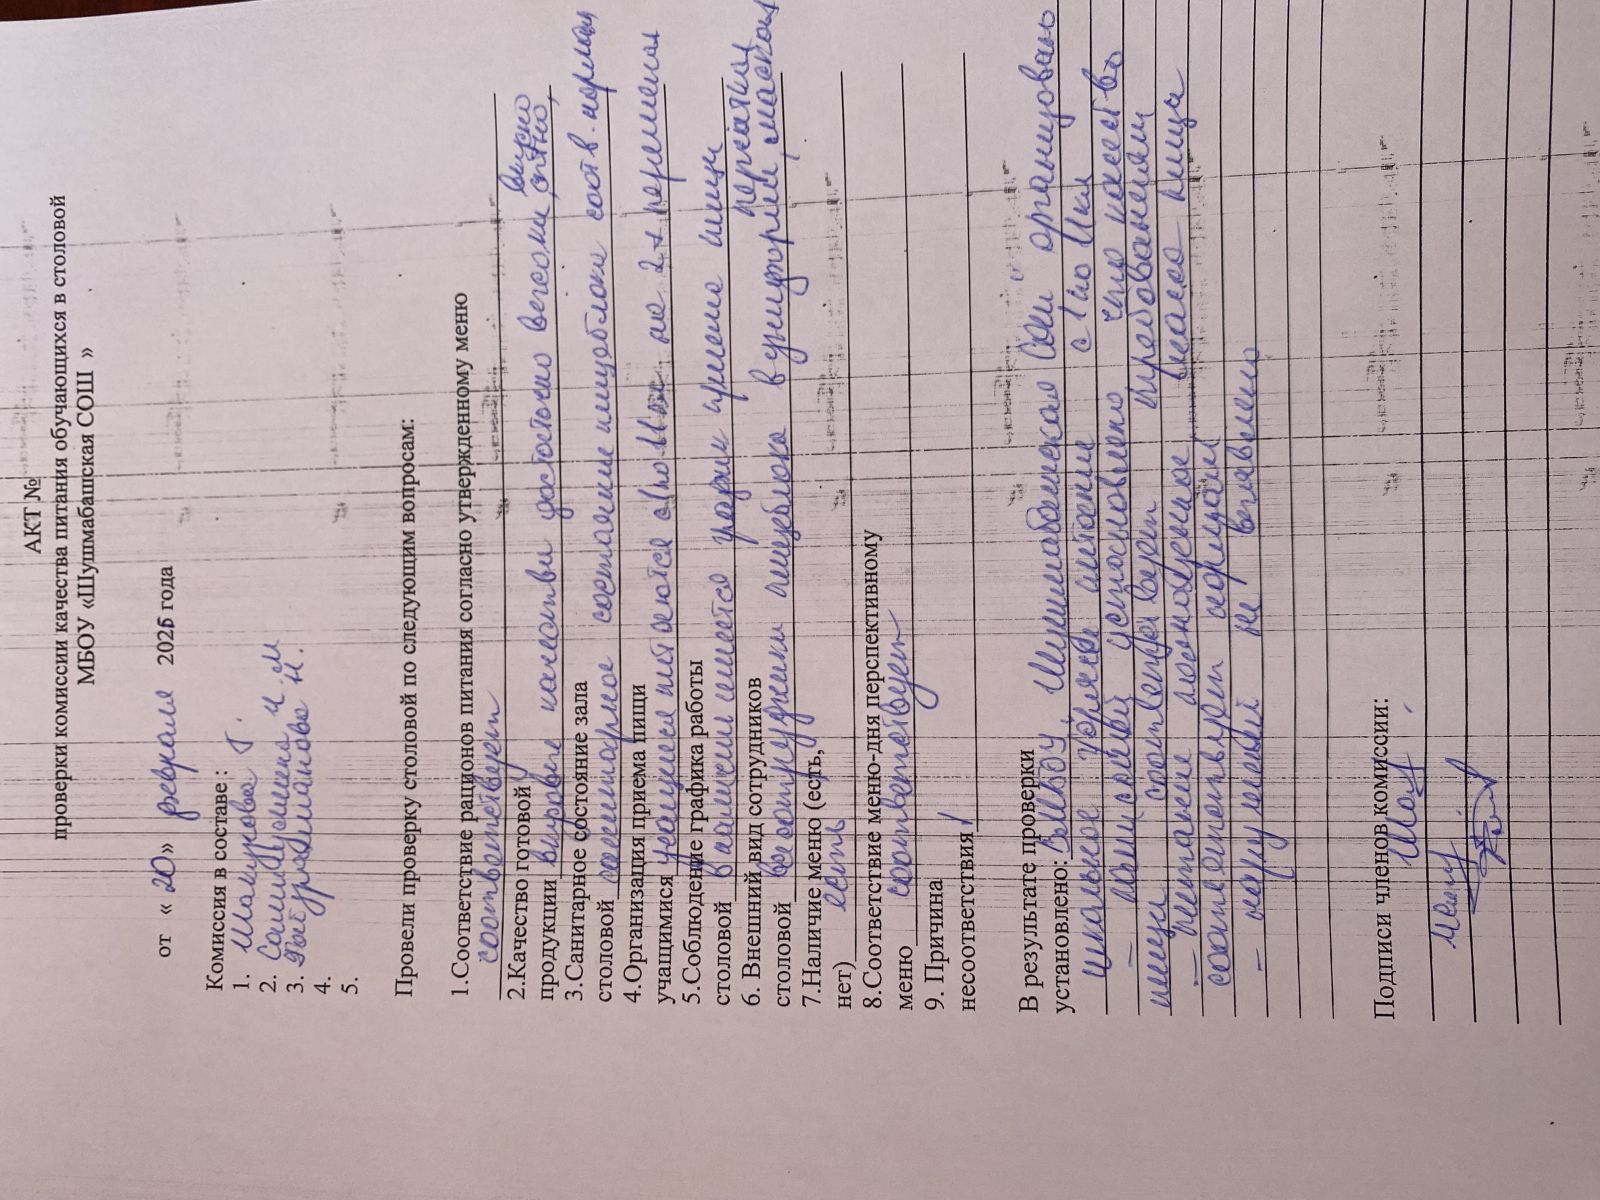 АКТ №
проверки комиссии качества питания обучающихся в столовой
МБОУ «Шушмабашская СОШ »
от « 20» февраля 2025 года
Комиссия в составе :
1. Шакурова Г.
2.
3.
4.
5.
Провели проверку столовой по следующим вопросам:
1.Соответствие рационов питания согласно утвержденному меню
соответствует
2.Качество готовой вкусно
продукции
3.Санитарное состояние зала
столовой санитарное состояние пищеблока соотв. нормам
4.Организация приема пищи
учащимися учащиеся питаются на 2-х переменах
5.Соблюдение графика работы
столовой в наличии имеется график приема пищи
6. Внешний вид сотрудников
столовой все сотрудники пищеблока в униформе, масках
перчатках
7.Наличие меню (есть,
нет) есть
8.Соответствие меню-дня перспективному
меню соответствует
9. Причина
несоответствия /
В результате проверки
установлено: В МБОУ „Шушмабашская СОШ“ организовано
школьное горячее питание с 1 по 11 кл
– комиссией установлено что качество
пищи соответствует требованиям
– питание разнообразное, масса пищи
соответствует нормам
– нарушений не выявлено
Подписи членов комиссии: